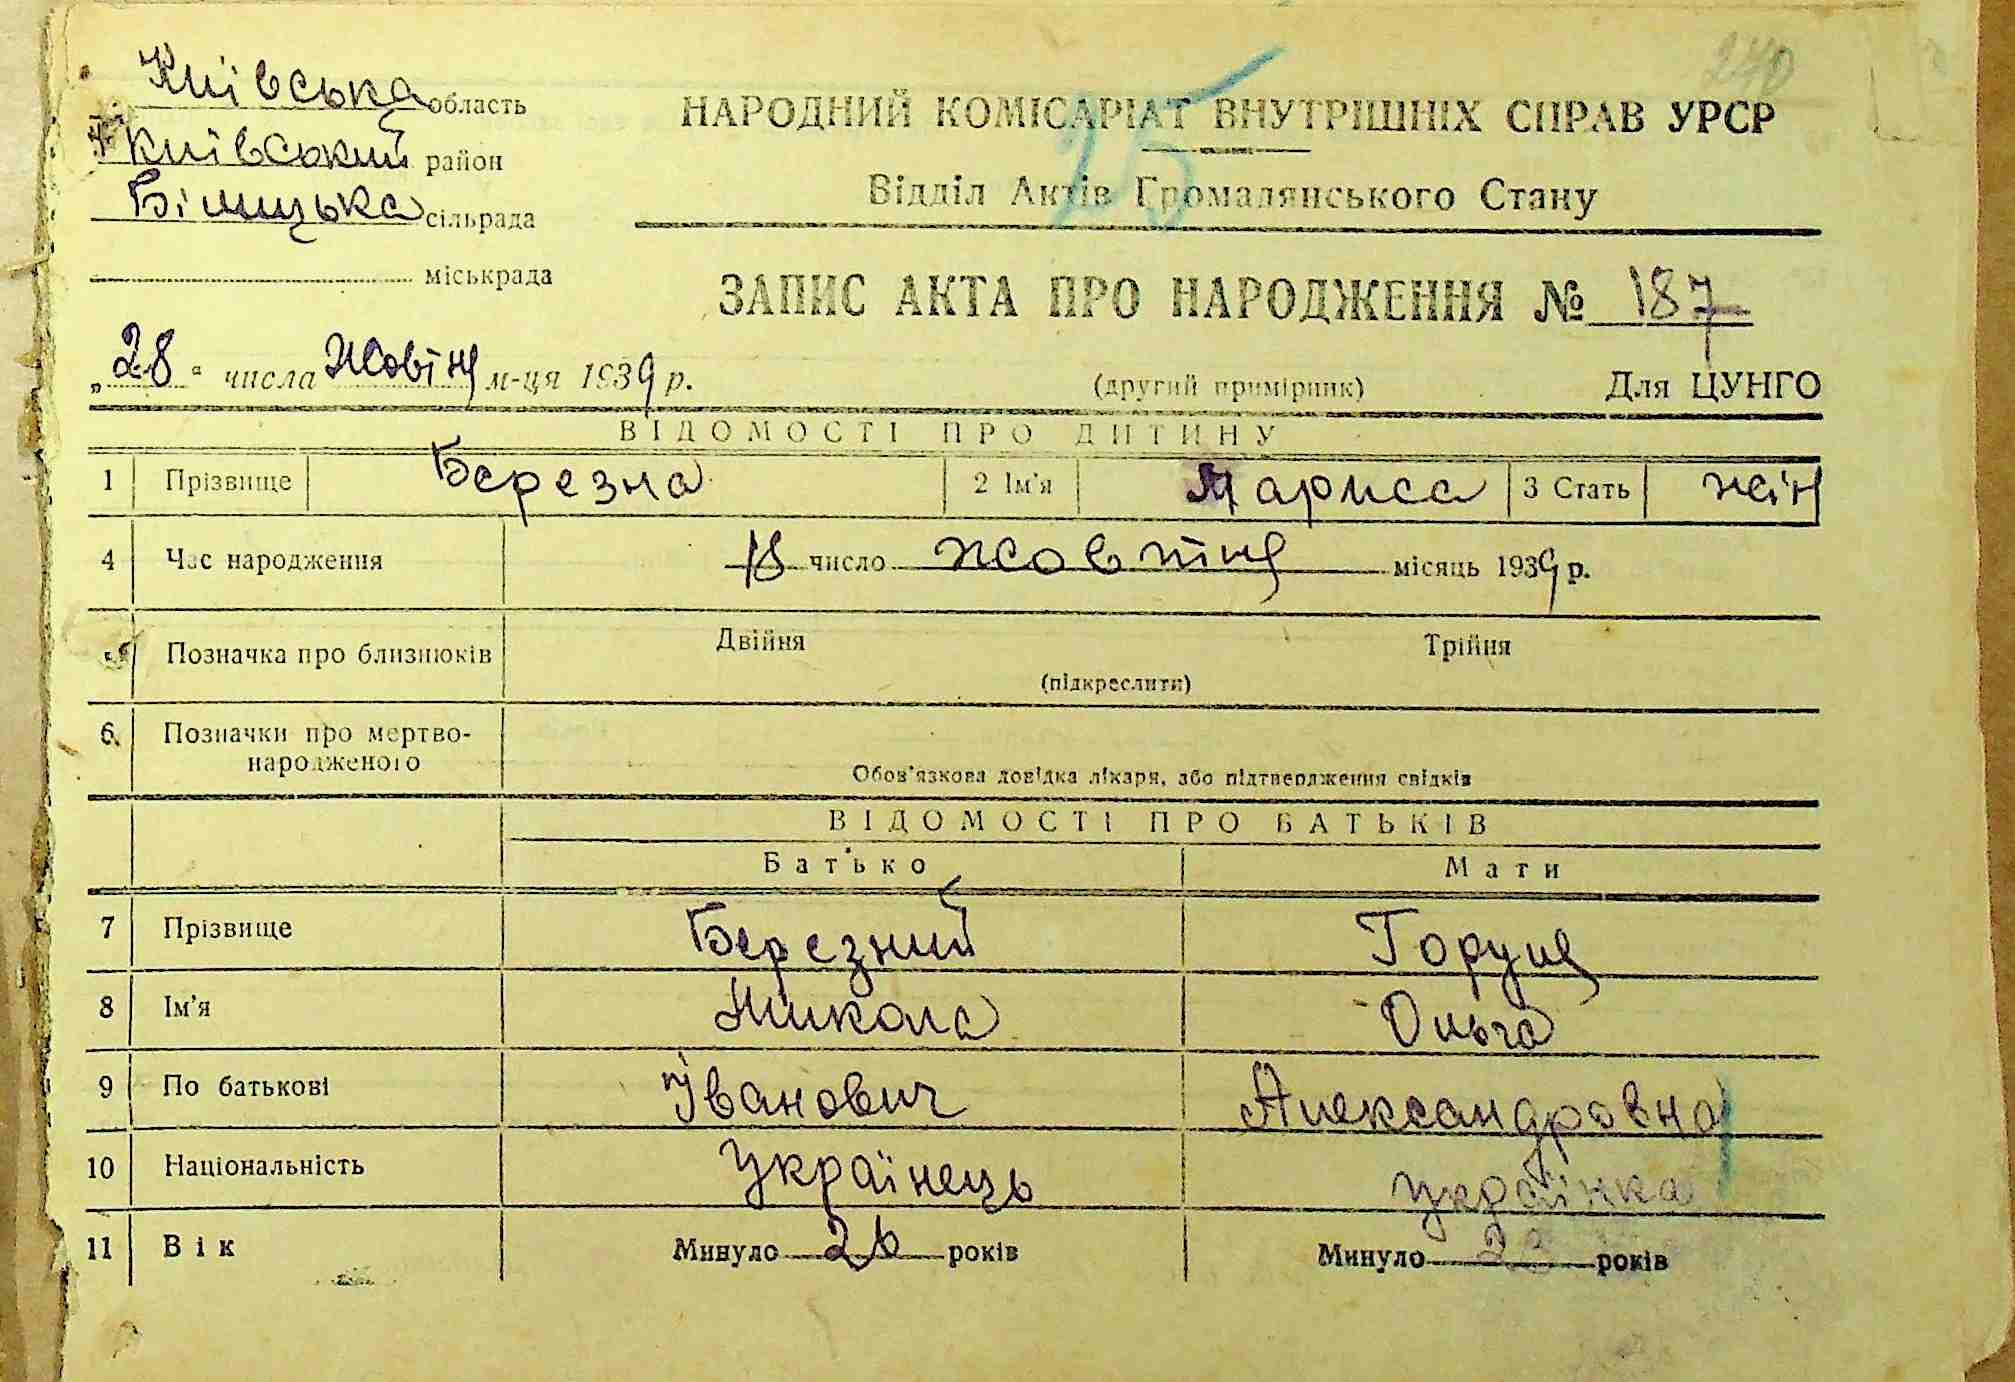 270
Київська область
Київський район
Білицька сільрада
міськрада
25
НАРОДНИЙ КОМІСАРІАТ ВНУТРІШНІХ СПРАВ УРСР
Відділ Актів Громадянського Стану
ЗАПИС АКТА ПРО НАРОДЖЕННЯ № 187
„28" числа Жовтня м-ця 1939 р.
(другий примірник) Для ЦУНГО
ВІДОМОСТІ ПРО ДИТИНУ
1 Прізвище Березна 2 Ім'я Лариса 3 Стать жін
4 Час народження 18 число жовтня місяць 1939 р.
Позначка про близнюків Двійня Трійня
(підкреслити)
6. Позначки про мертво-
народженого
Обов'язкова довідка лікаря, або підтвердження свідків
ВІДОМОСТІ ПРО БАТЬКІВ
Батько Мати
7 Прізвище Березний
8 Ім'я Микола Ольга
9 По батькові Іванович Александровна
10 Національність Українець Українка
11 Вік Минуло 26 років Минуло 23 років